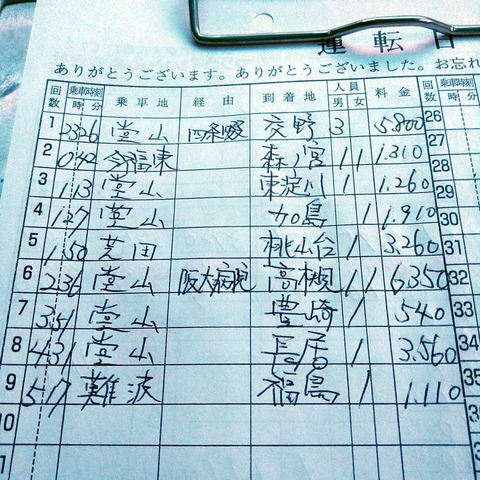 運転日
ありがとうございます。ありがとうございました。お忘れ
回数 乗車時刻 時 分 乗車地 経由 到着地 人員 男 女 料金 回数 乗車時刻 時 分
1 23 26 堂山 四条畷 交野 3 5.800 26
2 0 42 今福東 森ノ宮 1 1 1.310 27
3 1 13 堂山 東淀川 1 1.260 28
4 1 27 堂山 加島 1 1.910 29
5 1 50 芝田 桃山台 1 3.260 30
6 2 36 堂山 阪大病院 高槻 1 1 6350 31
7 3 51 堂山 豊崎 1 540 32
8 4 31 堂山 長居 1 3.560 33
9 5 17 難波 福島 1 1.110 34
10 35